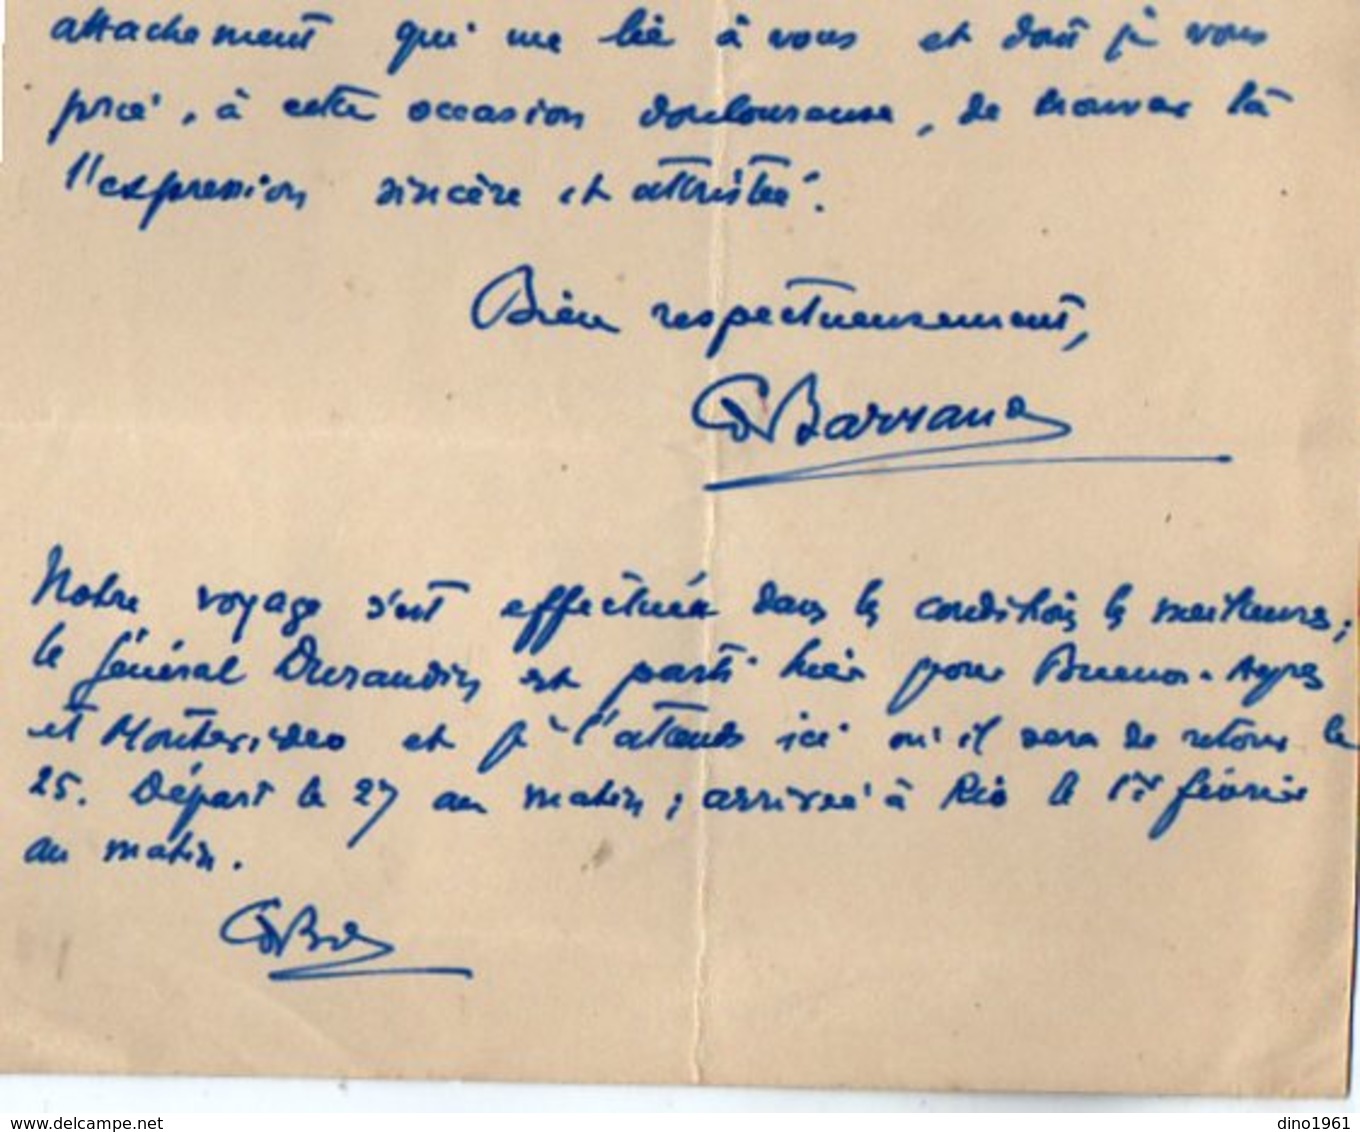 attachement qui me lie à vous et dont je vous
prie, à cette occasion douloureuse, de trouver là
l'expression sincère et attristée.
Bien respectueusement,
Barrand
Notre voyage s'est effectué dans les conditions les meilleures;
le Général Durandin est parti hier pour Buenos-Ayres
et Montevideo et je l'attends ici où il sera de retour le
25. Départ le 27 au matin; arrivée à Rio le 1er février
au matin.
www.delcampe.net
dino1961